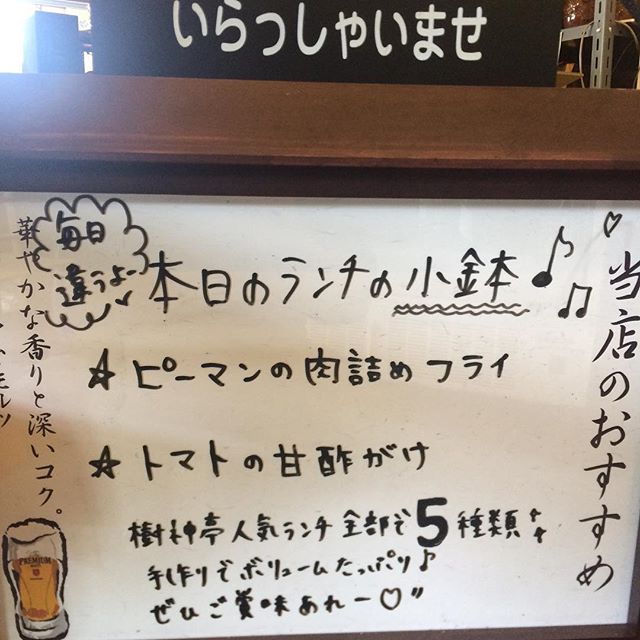 いらっしゃいませ
♡当店のおすすめ
毎日
違うよー
本日のランチの小鉢♪♫
☆ ピーマンの肉詰めフライ
☆ トマトの甘酢がけ
樹神亭人気ランチ全部で5種類
手作りでボリュームたっぷり♪
ぜひご賞味あれー♡"
華やかな香りと深いコク。
PREMIUM